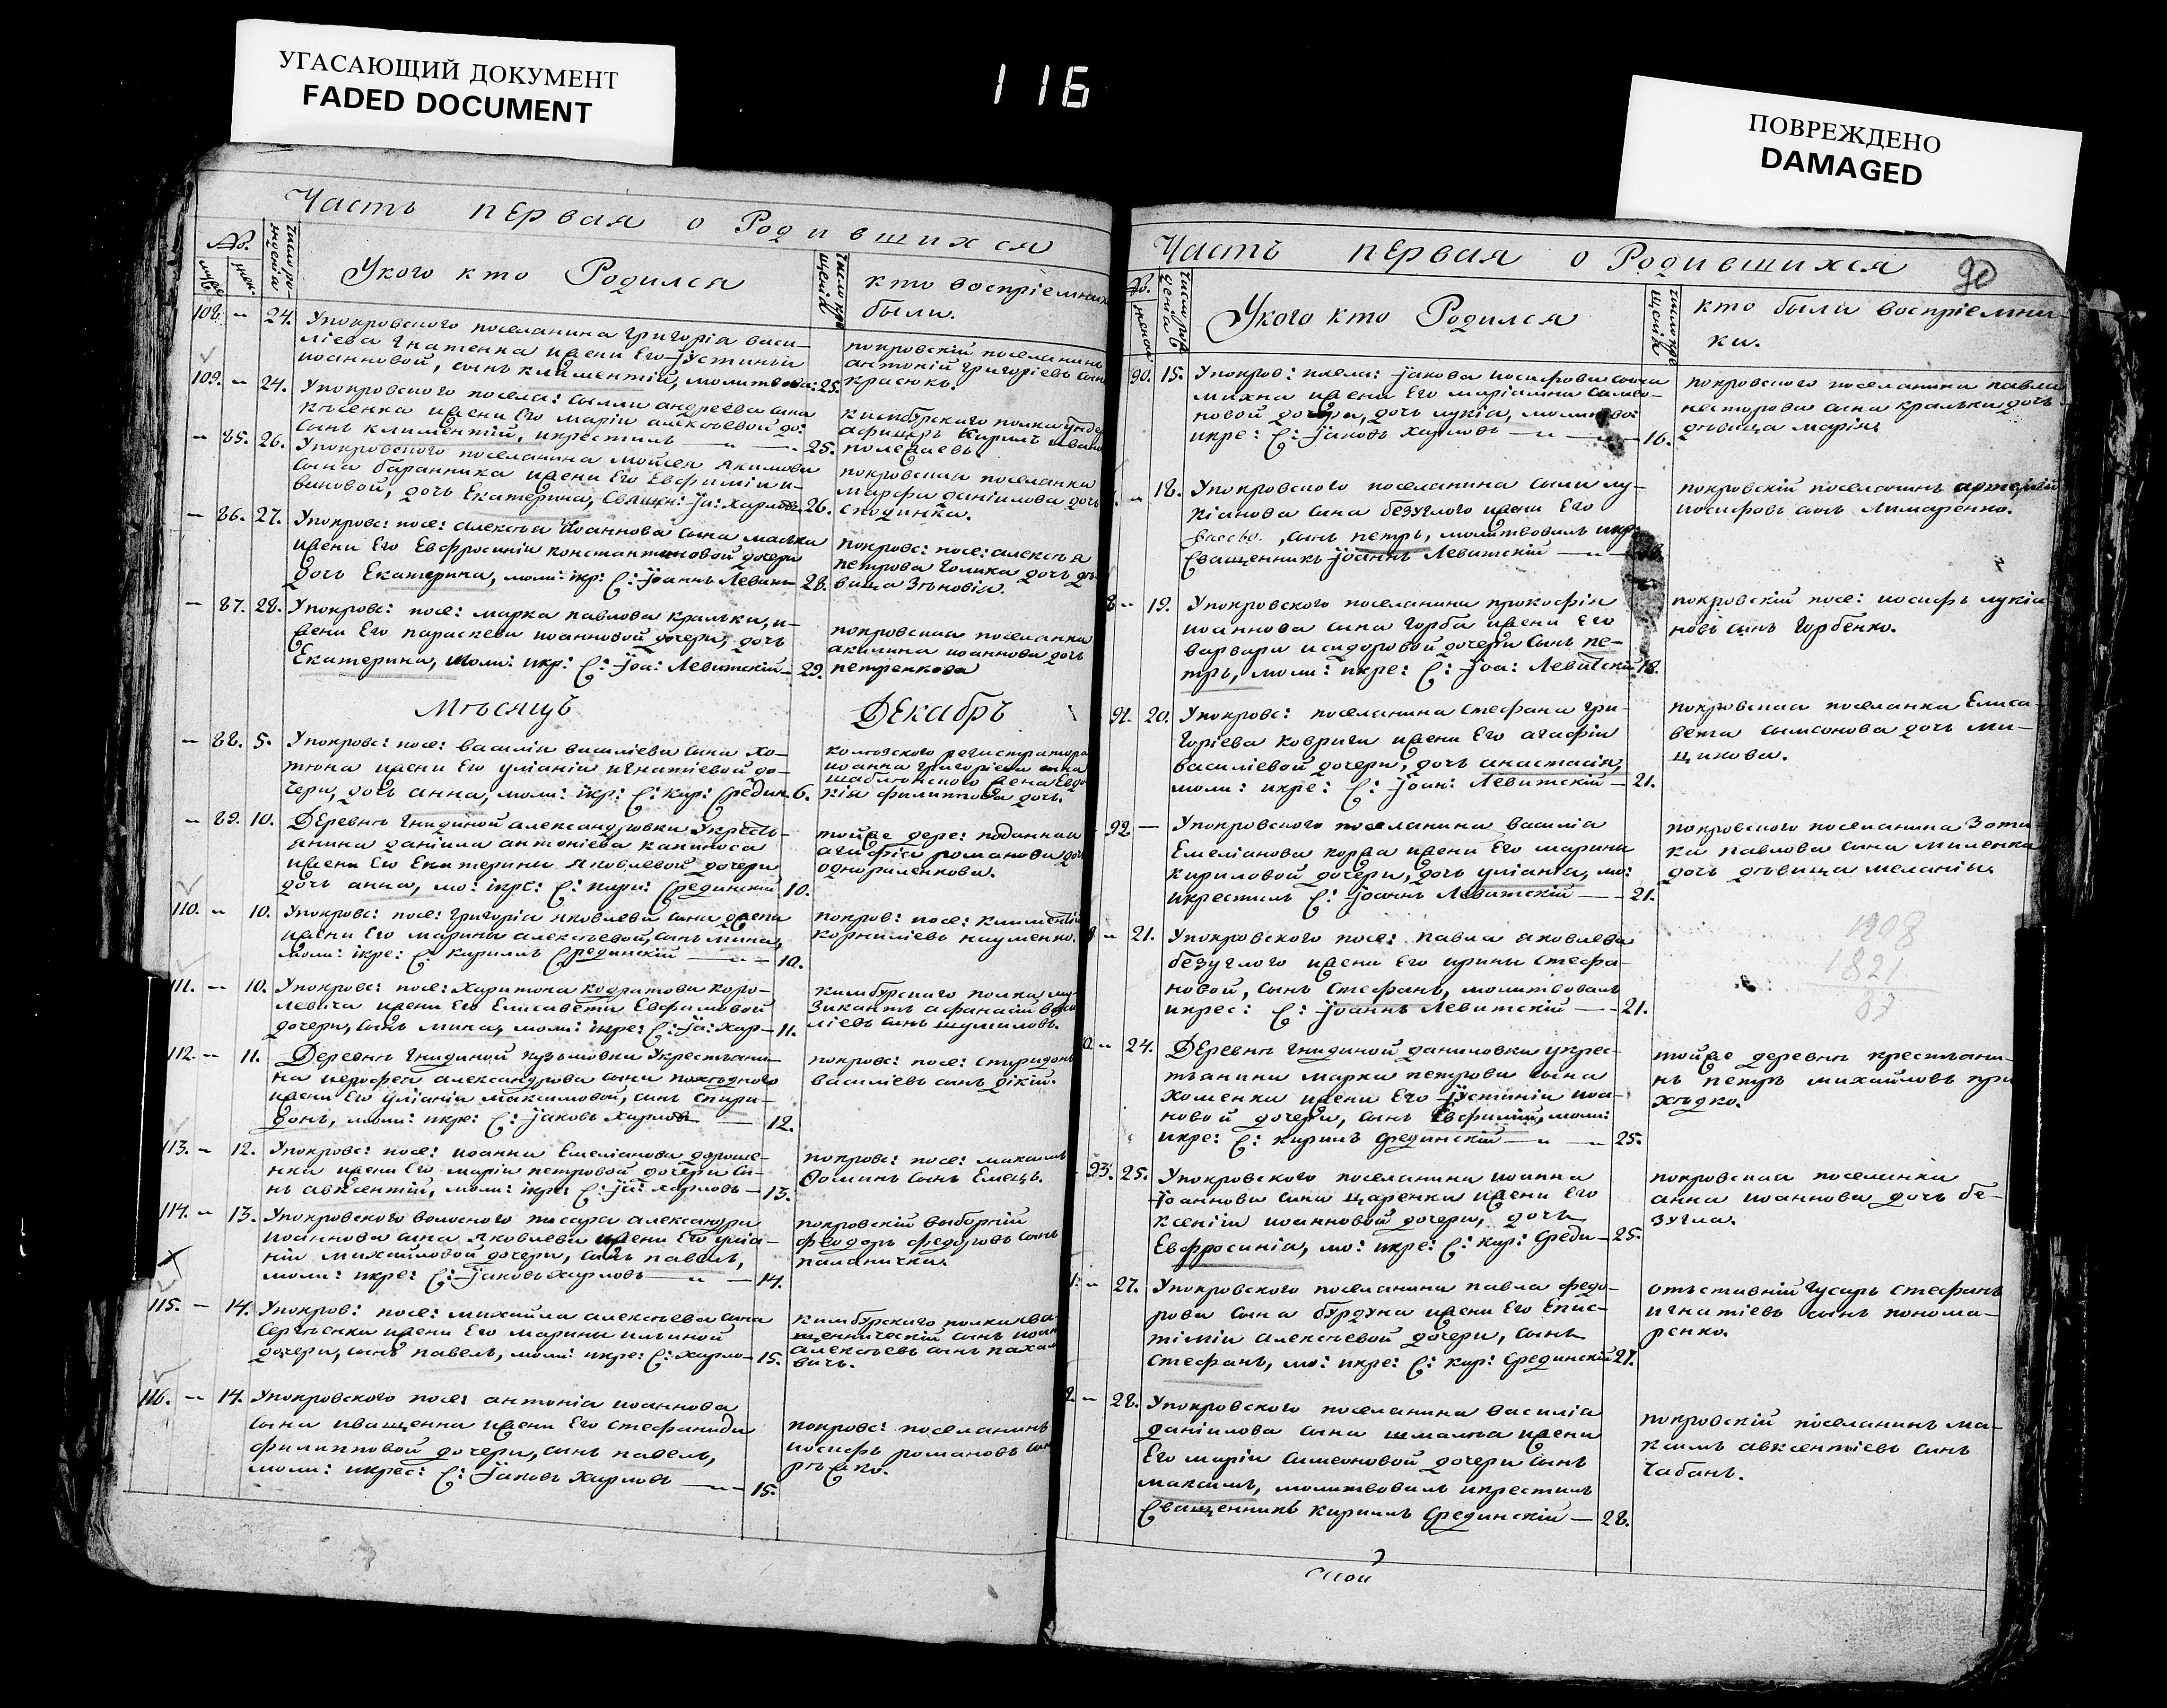 УГАСАЮЩИЙ ДОКУМЕНТ
FADED DOCUMENT
116
ПОВРЕЖДЕНО
DAMAGED
Часть первая о Родившихся
№.
Укого кто Родился
кто воспріемник
были.
108. — 24. Упокровского поселанина григорія васи-
ліева гнатенка жени Его Іустиніи
иоанновой, сынъ климентій, молитвова: 25.
покровскій поселанинъ
антоній григоріевъ сын
красюкъ.
109. — 24. Упокровского посела: сыли андреева сина
жени Его маріи алексѣевой до:
сынъ климентій, икрестилъ — 25.
кинбурского полка унде
афицеръ Кирилъ иван
полежаевъ
— 85. 26. Упокровского поселанина мойсея якимова
сына баранника жени Его Евфиміи и-
виновой, дочь Екатерина, Священ: Іа: Харловъ 26.
покровская поселанка
марфа даніилова дочь
сподинка.
— 86. 27. Упокровс: посе: алексѣа Иоаннова сына малки
жени Его Евфросиніи константиновой дочери
дочь Екатерина, моли: ікр: С: Іоаннъ Левит— 28.
покровс: посе: алексѣя
петрова голика дочь дѣ-
вица Зѣновія.
— 87. 28. Упокровс: посе: марка павлова кральки, и-
жени Его параскеви иоанновой дочери, дочь
Екатерина, моли: икр: С: Іоа: Левитскій — 29.
покровская поселанка
акилина иоаннова дочь
петренкова
Мѣсяцъ Декабрь
— 88. 5. Упокровс: посе: василіа василіева сина хо-
тюна жени Его уліаніи игнатіевой до-
чери, дочь анна, моли: ікр: С: Кир: Средин. 6.
колѣзского регистратора
иоанна григоріева сина
шаблѣнского жена Евдо
кія филиппова дочь.
— 89. 10. Деревнѣ гнидиной александровки Укресть-
янина даніила антоніева капиноса
жени Его Екатерини Яковлевой дочери
дочь анна, мо: ікре: С: Кири: Срединскій 10.
тойже дере: подданная
агафія романова доч
однориленкова.
110. — 10. Упокровс: посе: григоріа яковлева сина
жени Его марини алексѣевой, сынъ мина,
моли: ікре: С: кириллъ Срединскій — 10.
покров: посе: климентій
корниліевъ науменко.
111. — 10. Упокровс: посе: Харитона кодратова коро-
левича жени Его Елисавети Евфимовой
дочери, сынъ мина, моли: ікре: С: Іа: Хар— 11.
кинбурского полка му
зикантъ афанасій
ліевъ синъ шумиловъ.
112. — 11. Деревнѣ гнидиной кузьмовки Укрестьани-
на ирофея александрова сина похѣдного
жени Его уліаніи максимовой, синъ спири-
донъ, моли: икре: С: Іаковъ Харловъ — 12.
покровс: посе: спиридонъ
василіевъ синъ дікій.
113. — 12. Упокровс: посе: иоанна Емеліанова дороше-
нка жени Его маріи петровой дочери си-
нъ авксентій, моли: ікре: С: Іа: харловъ — 13.
покровс: посе: максимъ
Фоминъ синъ Емецъ.
114. — 13. Упокровского волосного писара александра
иоаннова сина яковлева жени Его уліа-
ніи михайловой дочери, синъ павелъ,
моли: икре: С: Іаковъ Харловъ — 14.
покровскій выборній
феодоръ федоровъ синъ
паланичка.
115. — 14. Упокров: посе: михайла алексѣева сина
Сергѣенка жени Его марини ильиной
дочери, синъ павелъ, моли: икре: С: Харло— 15.
кинбурского полка сва-
щенническій синъ иоан
алексѣевъ синъ
вичъ.
116. — 14. Упокровского посе: антоніа иоаннова
сына иващенка жени Его стефаниди
филипповой дочери, синъ павелъ,
моли: икрес: С: Іаковъ Харловъ — 15.
покровс: поселанинъ
иосифъ романовъ син
рѣжко.
Часть первая о Родившихся
90
№.
Укого кто Родился
кто были воспріемни-
ки.
90. 15. Упокров: посел: Іакова иосифова сина
михна жени Его маріанни симео-
новой дочери, дочь лукіа, молитво:
икре: С: Іаковъ Харловъ — 16.
покровского поселанина павла
несторова сина кральки дочь
дѣвица маріа.
— 18. Упокровского поселанина сили лу-
кіанова сина безуглого жени Его
, синъ петръ, молитвовалъ икр:
Сващенникъ Іоаннъ Левитскій — 18.
покровскій поселанинъ артемій
иосифовъ синъ лимаренко.
— 19. Упокровского поселанина прокофія
иоаннова сина горба жени Его
варвари исидоровой дочери синъ пе-
тръ, моли: икре: С: Іоа: Левитскій 19.
покровскій посе: иосифъ лукіа-
новъ синъ горбенко.
91. 20. Упокровс: поселанина стефана гри-
горіева ковриги жени Его агафіи
василіевой дочери, дочь анастасія,
моли: икре: С: Іоан: Левитскій — 21.
покровская поселанка Елиса-
вета самсонова дочь ми-
щикова.
92 — Упокровского поселанина василіа
Емеліанова коржа жени Его марини
кириловой дочери, дочь уліанія, мо:
икрестилъ С: Іоаннъ Левитскій — 21.
покровского поселанина Зоти-
ка павлова сина миленка
дочь дѣвица меланія.
— 21. Упокровского посе: павла яковлева
безуглого жени Его ирини стефа-
новой, синъ стефанъ, молитвовалъ
икрес: С: Іоаннъ Левитскій — 21.
1908
1821
— 24. Деревнѣ гнидиной даниловки укрес-
тьанина марка петрова сина
хоменка жени Его Іустиніи иоа-
новой дочери, синъ Евфимій, моли:
икре: С: кирилъ Срединскій — 25.
тойже деревнѣ крестьани-
нъ петръ михайловъ при
ходко.
93. 25. Упокровского поселанина иоанна
Іоаннова сина царенка жени Его
ксеніи иоанновой дочери, дочь
Евфросинія, мо: икре: С: Кир: Среди— 25.
покровская поселанка
анна иоаннова дочь бе-
зугла.
— 27. Упокровского поселанина павла федо-
рова сина бурдуна жени Его Епис-
тиміи алексѣевой дочери, синъ
стефанъ, мо: икре: С: Кир: Срединскій 27.
отъставній гусаръ стефанъ
игнатіевъ синъ понома-
ренко.
— 28. Упокровского поселанина василіа
даніилова сина шмалка жени
Его маріи симеоновой дочери синъ
максимъ, молитвовалъ икрестилъ
Сващенникъ кириллъ Срединскій — 28.
покровскій поселанинъ ма-
ксимъ авксентіевъ синъ
чабанъ.